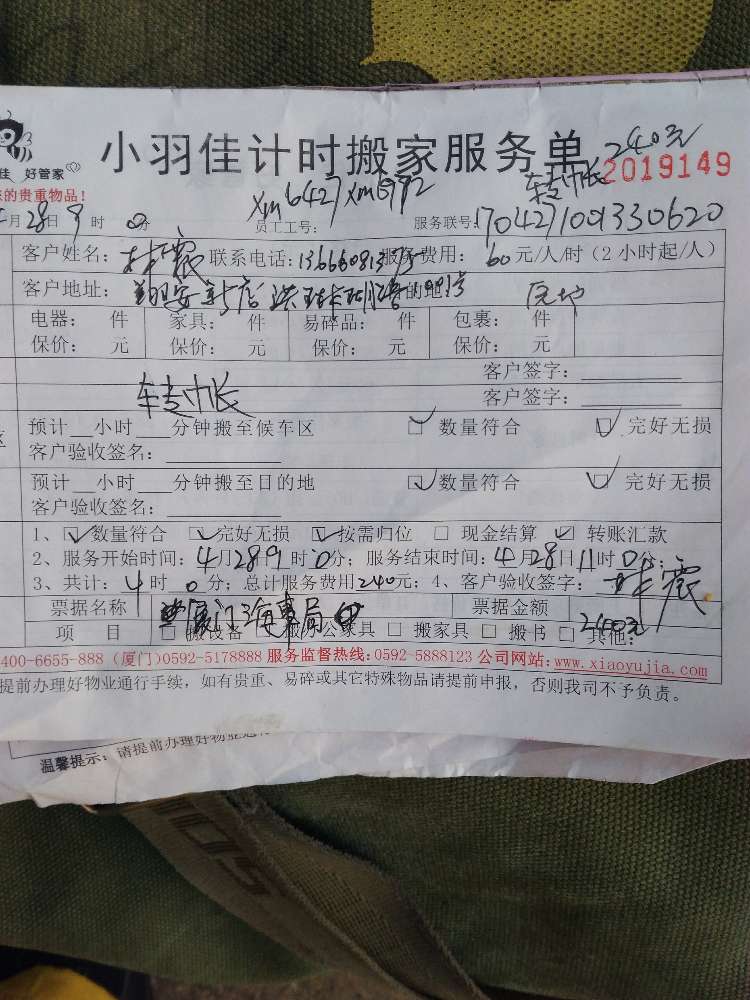 小羽佳计时搬家服务单 240元
佳 好管家 转账 2019149
的贵重物品!
月28日9时0分 员工工号: xm6427 xm6992 服务联号: 1704271001330620
客户姓名: 林震 联系电话: 服务费用: 60元/人/时(2小时起/人)
客户地址: 翔安新店
电器: 件 家具: 件 易碎品: 件 包裹: 件
保价: 元 保价: 元 保价: 元 保价: 元
客户签字:
转账 客户签字:
预计__小时___分钟搬至候车区 ☑ 数量符合 ☑ 完好无损
客户验收签名:
预计__小时___分钟搬至目的地 ☑ 数量符合 ☑ 完好无损
客户验收签名:
1、☑ 数量符合 ☑ 完好无损 ☑ 按需归位 □ 现金结算 ☑ 转账汇款
2、服务开始时间: 4月28日9时0分; 服务结束时间: 4月28日11时0分;
3、共计: 4时0分; 总计服务费用240元; 4、客户验收签字: 林震
票据名称 厦门海事局 票据金额 240元
项 目 □ 搬设备 □ 搬办公家具 □ 搬家具 □ 搬书 □ 其他:
400-6655-888 (厦门)0592-5178888 服务监督热线:0592-5888123 公司网站:www.xiaoyujia.com
提前办理好物业通行手续,如有贵重、易碎或其它特殊物品请提前申报,否则我司不予负责。
温馨提示: 请提前办理好物业通